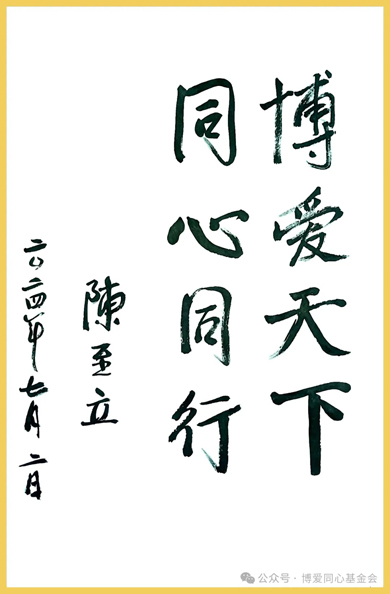 博爱天下
同心同行
陳至立
二〇二四年七月二日
公众号·博爱同心基金会